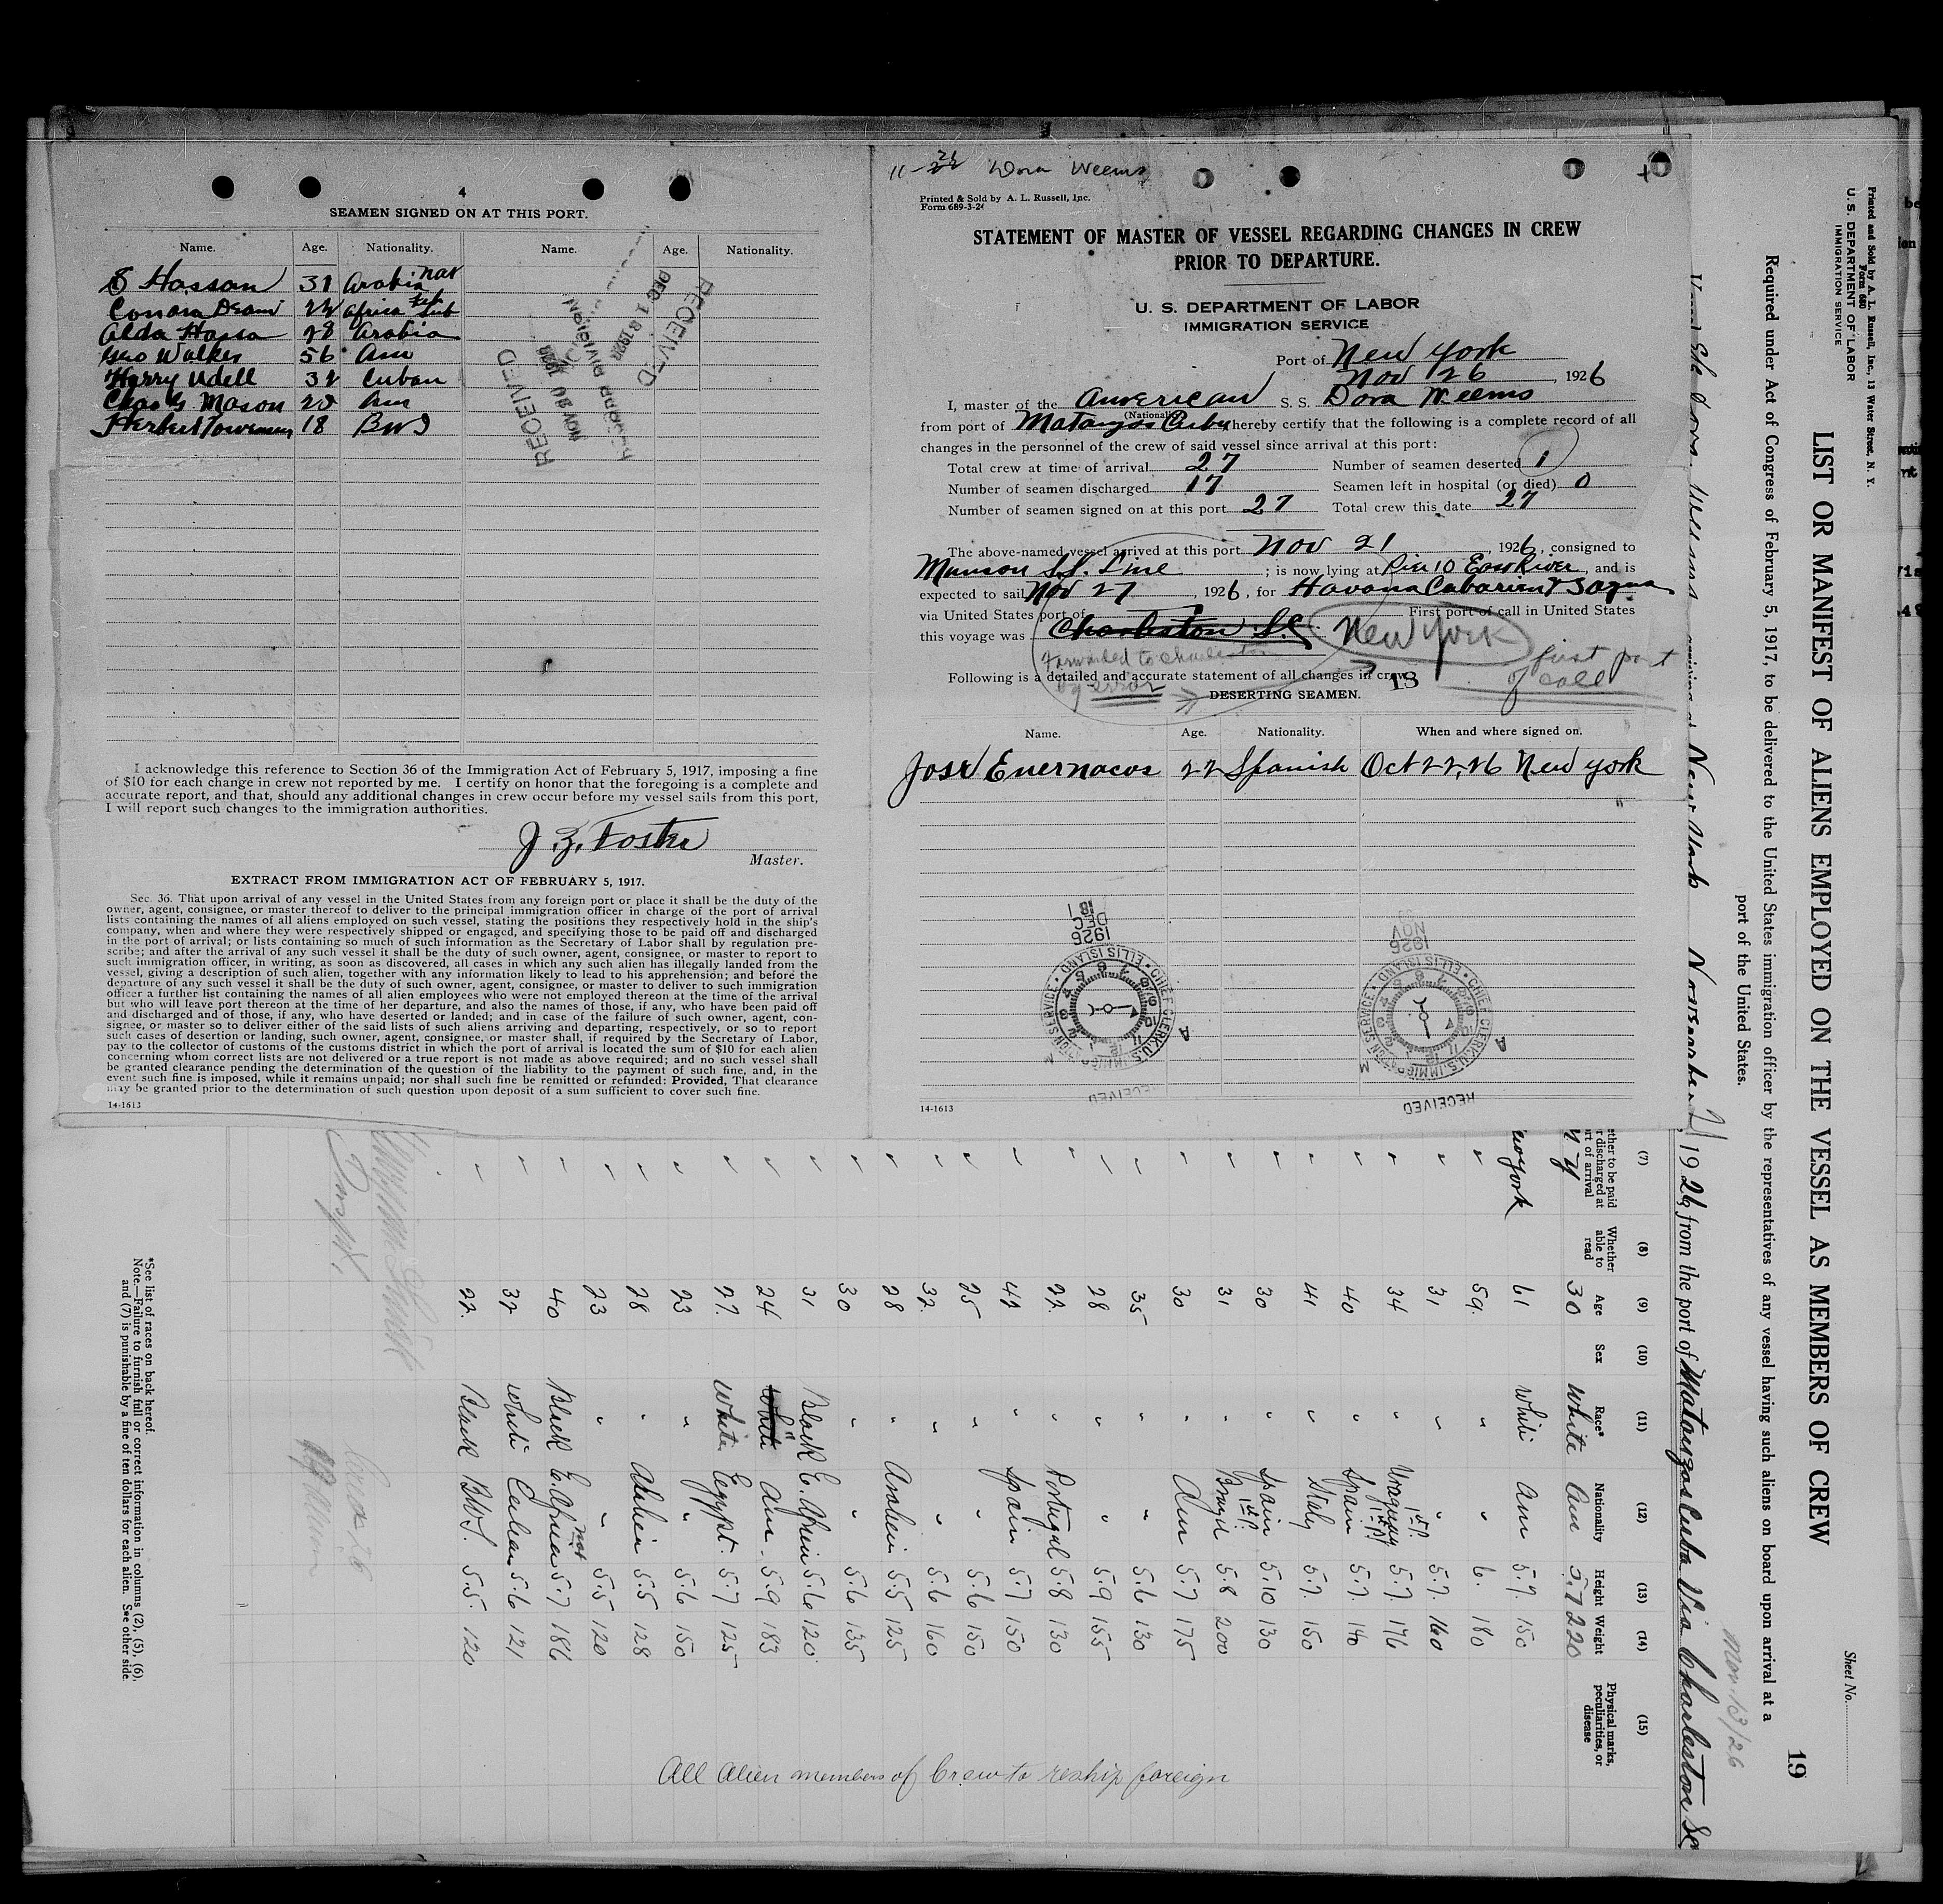 4
SEAMEN SIGNED ON AT THIS PORT.
Name. Age. Nationality. Name. Age. Nationality.
S Hassan 31 Arabia nat
Conara 22 Africa Sub
Alda Hassa 28 Arabia
Geo Walker 56 Am
Harry Udell 32 Cuban
Chas G. Mason 20 Am
Herbert 18 BWI
RECEIVED
NOV 30 1926
RECEIVED
DEC 18 1926
DIVISION
I acknowledge this reference to Section 36 of the Immigration Act of February 5, 1917, imposing a fine
of $10 for each change in crew not reported by me. I certify on honor that the foregoing is a complete and
accurate report, and that, should any additional changes in crew occur before my vessel sails from this port,
I will report such changes to the immigration authorities.
J. Z. Foster
Master.
EXTRACT FROM IMMIGRATION ACT OF FEBRUARY 5, 1917.
Sec. 36. That upon arrival of any vessel in the United States from any foreign port or place it shall be the duty of the
owner, agent, consignee, or master thereof to deliver to the principal immigration officer in charge of the port of arrival
lists containing the names of all aliens employed on such vessel, stating the positions they respectively hold in the ship's
company, when and where they were respectively shipped or engaged, and specifying those to be paid off and discharged
in the port of arrival; or lists containing so much of such information as the Secretary of Labor shall by regulation pre-
scribe; and after the arrival of any such vessel it shall be the duty of such owner, agent, consignee, or master to report to
such immigration officer, in writing, as soon as discovered, all cases in which any such alien has illegally landed from the
vessel, giving a description of such alien, together with any information likely to lead to his apprehension; and before the
departure of any such vessel it shall be the duty of such owner, agent, consignee, or master to deliver to such immigration
officer a further list containing the names of all alien employees who were not employed thereon at the time of the arrival
but who will leave port thereon at the time of her departure, and also the names of those, if any, who have been paid off
and discharged and of those, if any, who have deserted or landed; and in case of the failure of such owner, agent, con-
signee, or master so to deliver either of the said lists of such aliens arriving and departing, respectively, or so to report
such cases of desertion or landing, such owner, agent, consignee, or master shall, if required by the Secretary of Labor,
pay to the collector of customs of the customs district in which the port of arrival is located the sum of $10 for each alien
concerning whom correct lists are not delivered or a true report is not made as above required; and no such vessel shall
be granted clearance pending the determination of the question of the liability to the payment of such fine, and, in the
event such fine is imposed, while it remains unpaid; nor shall such fine be remitted or refunded: Provided, That clearance
may be granted prior to the determination of such question upon deposit of a sum sufficient to cover such fine.
14-1613
Dora Weems
Printed & Sold by A. L. Russell, Inc.
Form 689-3-24
STATEMENT OF MASTER OF VESSEL REGARDING CHANGES IN CREW
PRIOR TO DEPARTURE.
U. S. DEPARTMENT OF LABOR
IMMIGRATION SERVICE
Port of New York
Nov 26, 1926
I, master of the American S. S. Dora Weems
(Nationality)
from port of Matanzas Cuba, hereby certify that the following is a complete record of all
changes in the personnel of the crew of said vessel since arrival at this port:
Total crew at time of arrival 27 Number of seamen deserted 1
Number of seamen discharged 17 Seamen left in hospital (or died) 0
Number of seamen signed on at this port 27 Total crew this date 27
The above-named vessel arrived at this port Nov 21, 1926, consigned to
Munson S.S. Line ; is now lying at Pier 10 East River, and is
expected to sail Nov 27, 1926, for Havana Cabarien & Sagua
via United States port of First port of call in United States
this voyage was Charleston SC New York
Forwarded to Charleston
by error
first port
of call
Following is a detailed and accurate statement of all changes in crew.
18
DESERTING SEAMEN.
Name. Age. Nationality. When and where signed on.
Jose Enernacos 22 Spanish Oct 22, 26 New York
1926
DEC
18
CHIEF CLERK U.S. IMMIGRATION SERVICE • ELLIS ISLAND
RECEIVED
1926
NOV
CHIEF CLERK U.S. IMMIGRATION SERVICE • ELLIS ISLAND
RECEIVED
14-1613
Printed and Sold by A. L. Russell, Inc., 13 Water Street, N. Y.
Form 680
U. S. DEPARTMENT OF LABOR
IMMIGRATION SERVICE
Sheet No.
19
LIST OR MANIFEST OF ALIENS EMPLOYED ON THE VESSEL AS MEMBERS OF CREW
Required under Act of Congress of February 5, 1917, to be delivered to the United States immigration officer by the representatives of any vessel having such aliens on board upon arrival at a
port of the United States.
arriving at New York November 21, 1926, from the port of Matanzas Cuba Via Charleston SC
(7) (8) (9) (10) (11) (12) (13) (14) (15)
Whether able to read Age Sex Race* Nationality Height Weight Physical marks, peculiarities, or disease
N Y 30 White Am 5.7 220
New York 61 White Am 5.7. 150
" 59. " " 6. 180
" 31 " " 5.7. 160
" 34 " Uruguay 1st P. 5.7. 176
" 40 " Spain 1st P. 5.7. 140
" 41 " Italy 5.7. 150
" 30 " Spain 5.10 130
" 31 " Brazil 1st P. 5.8 200
" 30 " Am 5.7 175
" 35 " " 5.6 130
" 28 " " 5.9 155
" 22. " Portugal 5.8 130
" 42 " Spain 5.7 150
" 25 " " 5.6 150
" 32. " " 5.6 160
" 28 " Arabein 5.5 125
" 30 " " 5.6 135
" 31 Black E. Africa 5.6 120
" 24 White " Am. 5.9 183
" 27. White Egypt. 5.7 125
" 23 " " 5.6 150
" 28 " Arabien 5.5 128
" 23 " " 5.5 120
" 40 Black E. Africa nat 5.7 186
" 32 White Cuban 5.6 121
" 22. Black B.W.I. 5.5. 120
All Alien members of Crew to reship foreign
*See list of races on back hereof.
Note.—Failure to furnish full or correct information in columns (2), (5), (6),
and (7) is punishable by a fine of ten dollars for each alien. See other side.